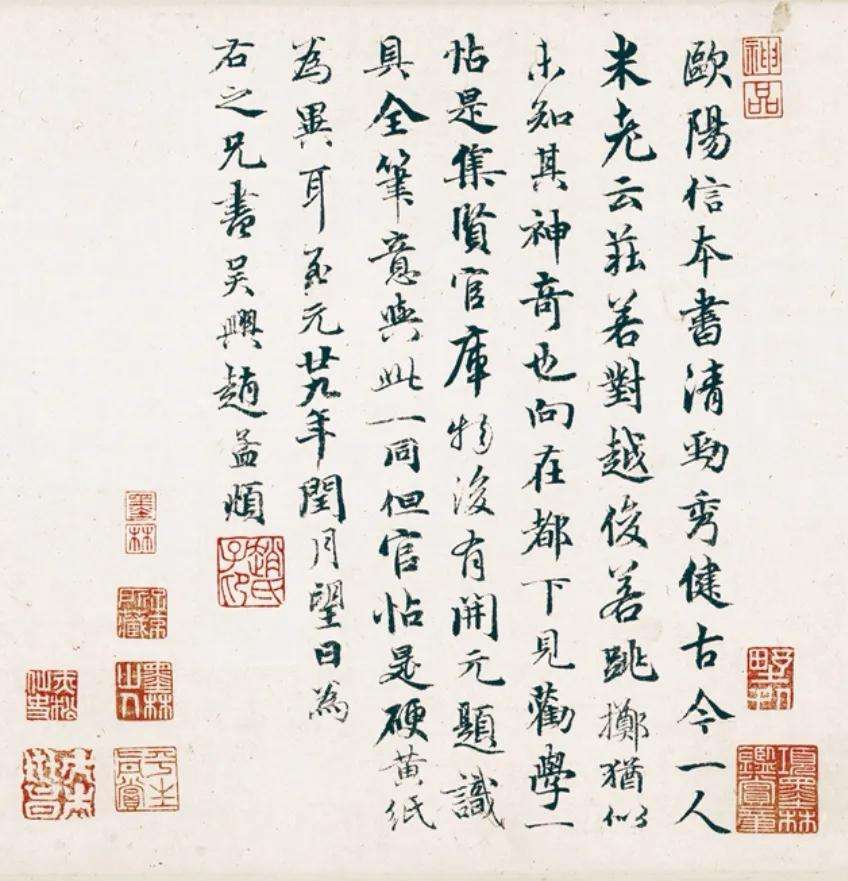 歐陽信本書清勁秀健古今一人
米老云莊若對越俊若跳擲猶似
未知其神奇也向在都下見勸學一
帖是集賢官庫物後有開元題識
具全筆意與此一同但官帖是硬黃紙
為異耳至元廿九年閏月望日為
右之兄書吳興趙孟頫
神品
趙氏子昂
墨林
項墨林鑑賞章
墨林山人